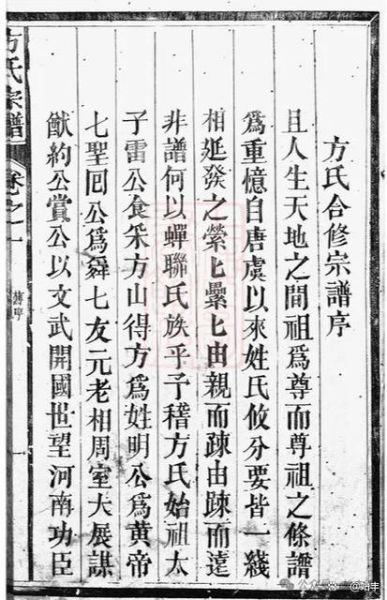 方氏合修宗譜序
且人生天地之間祖爲尊而尊祖之條譜
爲重憶自唐虞以來姓氏攸分要皆一綫
相延發之縈匕纍匕由親而疎由踈而遠
非譜何以蟬聯氏族乎予稽方氏始祖太
子雷公食采方山得方爲姓明公爲黃帝
七聖囘公爲舜七友元老相周室大展謀
猷約公賞公以文武開國世望河南功臣
方氏宗譜
卷之一
舊序